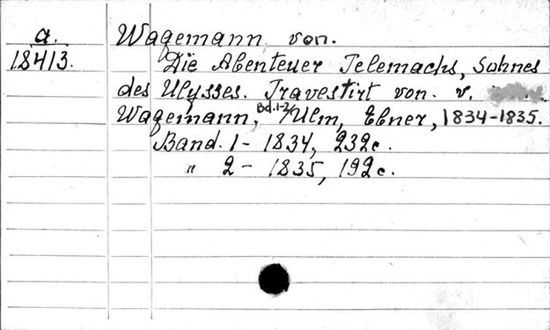 a. Wagemann, von.
18413. Die Abenteuer Telemachs, Sohnes
des Ulysses. Travestirt von. v.
Wagemann, Bd.1-2, Ulm, Ebner, 1834-1835.
Band. 1 - 1834, 232c.
" 2 - 1835, 192c.